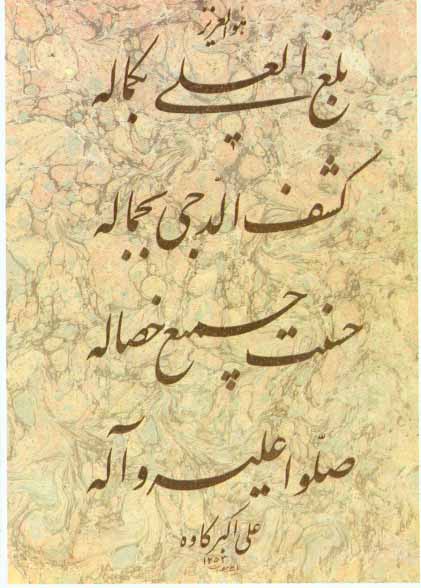 هو العزیز
بلغ العلی بکماله
کشف الدجی بجماله
حسنت جمیع خصاله
صلّوا علیه وآله
علی اکبر کاوه